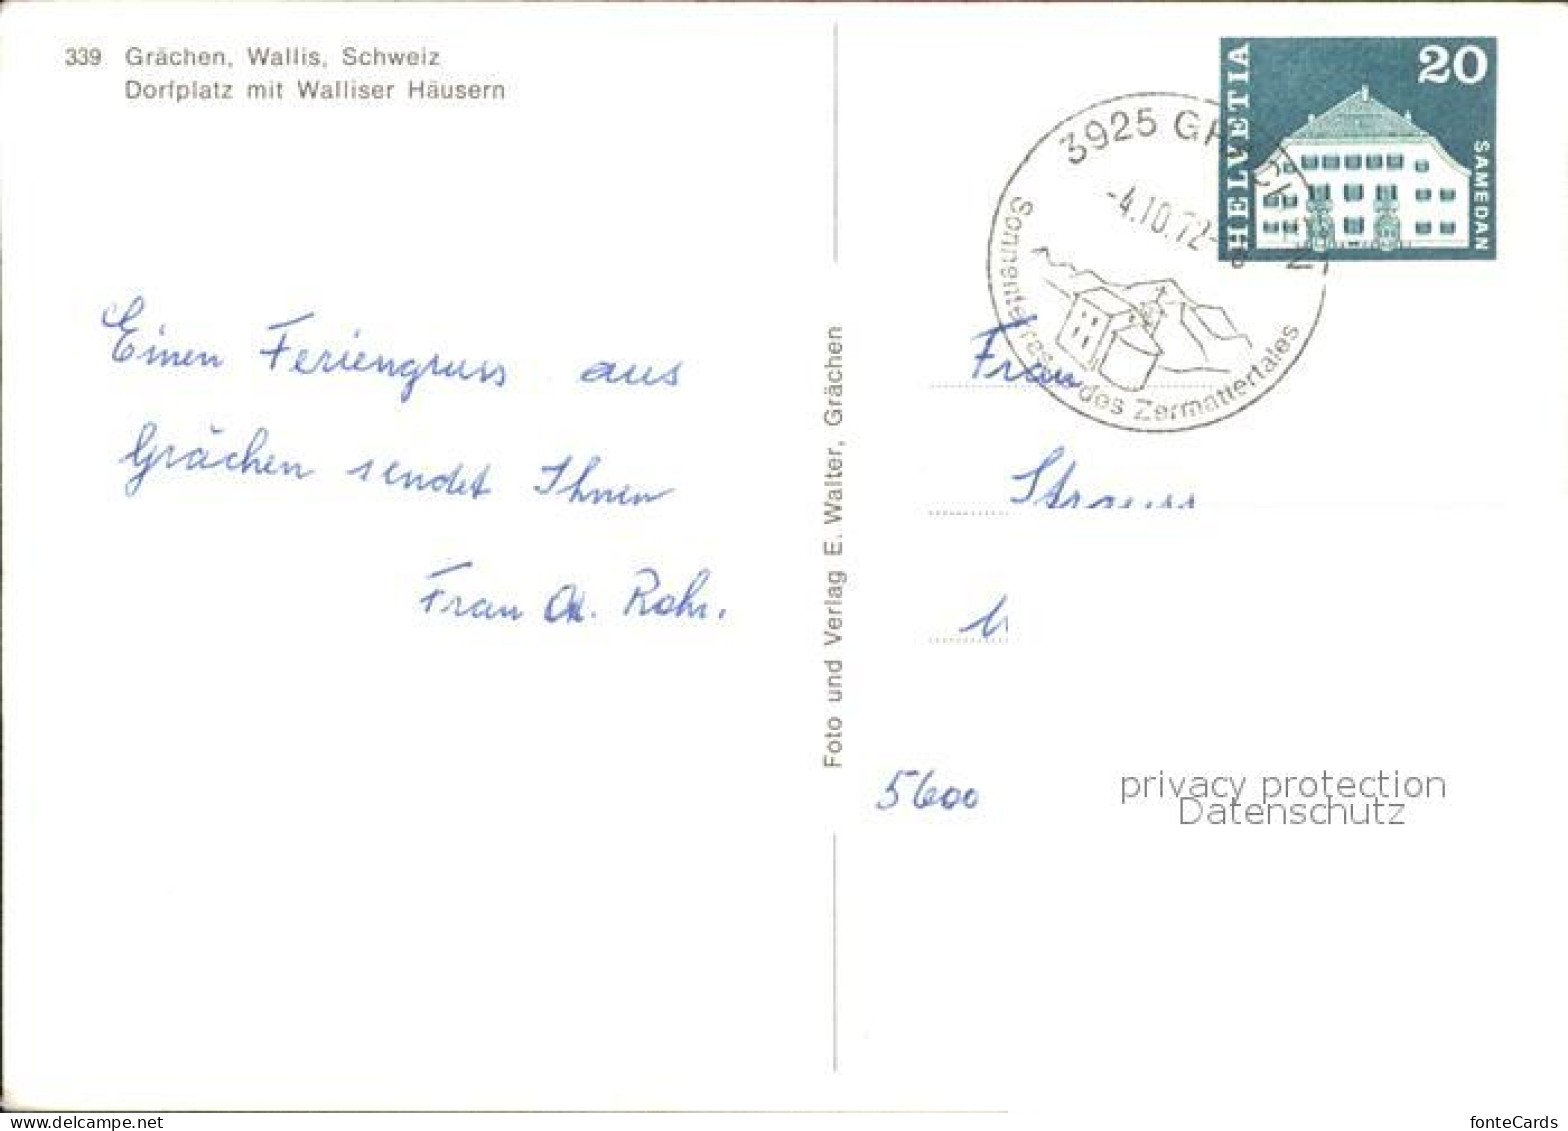 339 Grächen, Wallis, Schweiz
Dorfplatz mit Walliser Häusern
Einen Feriengruss aus
Grächen sendet Ihnen
Frau Rohr.
Foto und Verlag E. Walter, Grächen
HELVETIA
20
SAMEDAN
3925 GRÄCHEN
-4.10.72-
Sonnenterrasse des Zermattertales
Frau
Strauss
5600
privacy protection
Datenschutz
fonteCards